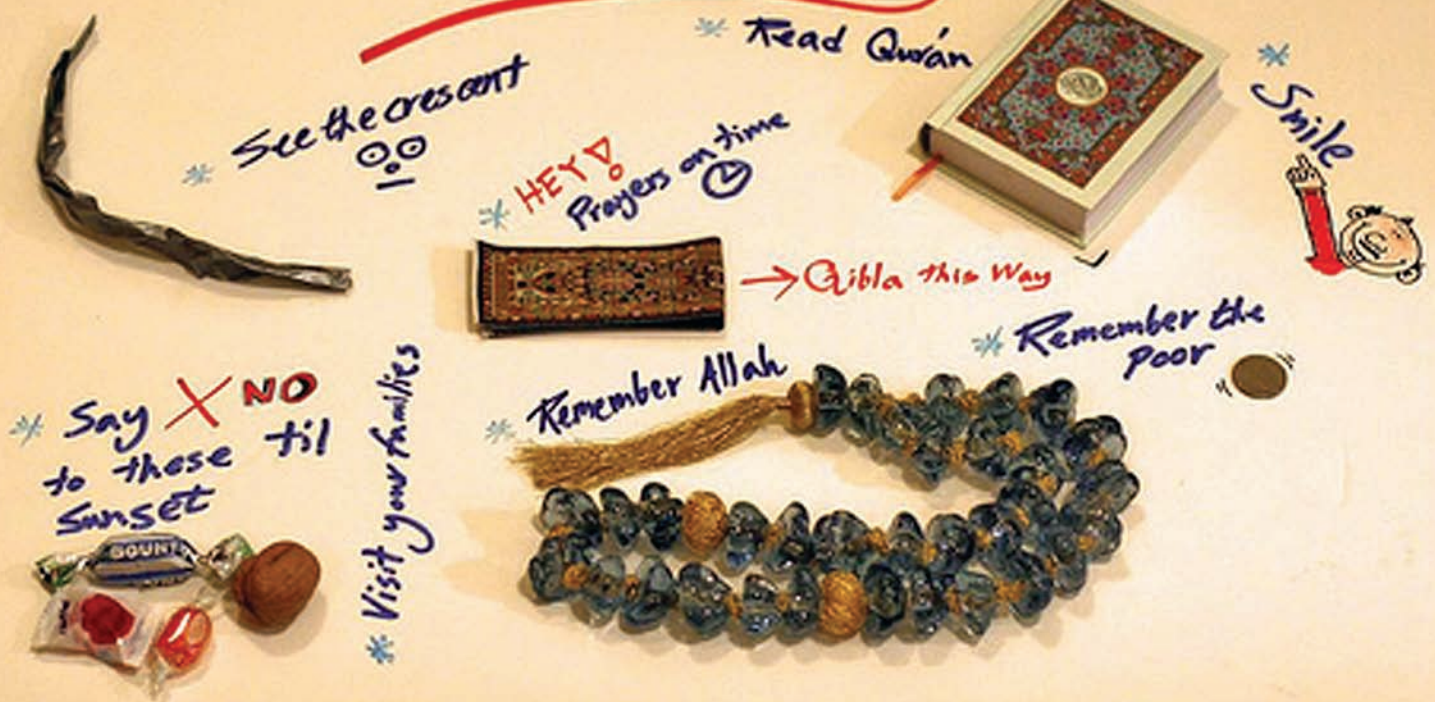 * Read Qur'an
* Smile
* See the crescent
* HEY!
Prayers on time
→ Qibla this way
* Remember the
poor
* Remember Allah
* Say X NO
to these til
sunset
* Visit your families
BOUNTY